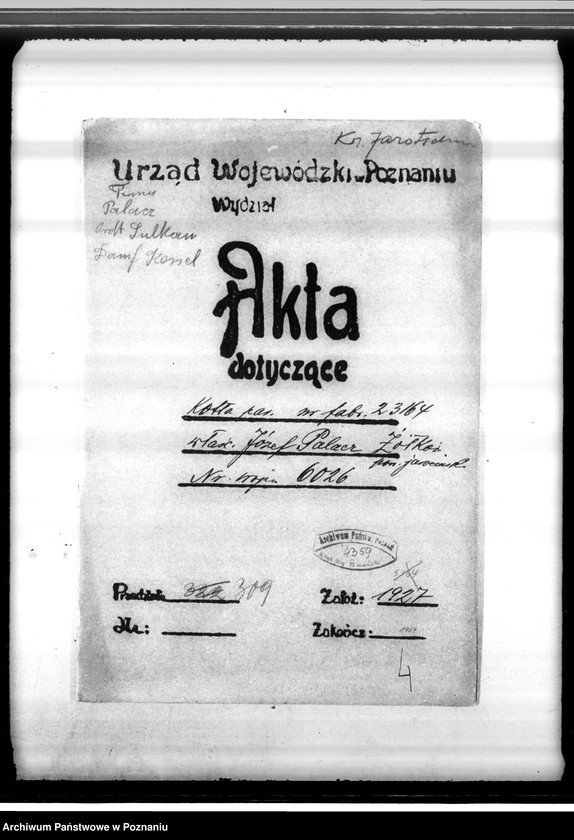 Kr. Jarotschin
Urząd Wojewódzki w Poznaniu
Wydział
Palacz
Dampf Kessel
Akta
dotyczące
Kotła par. nr fabr. 23164
właś. Józef Palacz Żółków
pow. jarocinsk.
Nr. wojew. 6026
Archiwum Państw. Poznań
4359
309
Założ: 1927
Nr:
Zakończ:
4
Archiwum Państwowe w Poznaniu